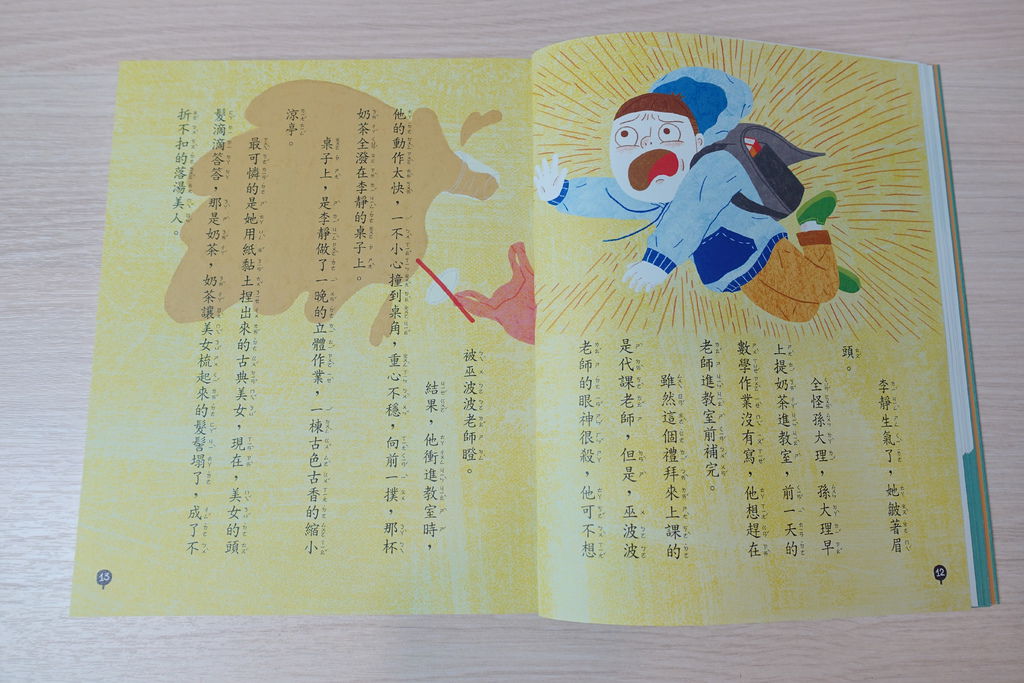 李靜生氣了，她皺著眉
頭。
全怪孫大理，孫大理早
上提奶茶進教室，前一天的
數學作業沒有寫，他想趕在
老師進教室前補完。
雖然這個禮拜來上課的
是代課老師，但是，巫波波
老師的眼神很殺，他可不想
12
被巫波波老師瞪。
結果，他衝進教室時，
他的動作太快，一不小心撞到桌角，重心不穩，向前一撲，那杯
奶茶全潑在李靜的桌子上。
桌子上，是李靜做了一晚的立體作業，一棟古色古香的縮小
涼亭。
最可憐的是她用紙黏土捏出來的古典美女，現在，美女的頭
髮滴滴答答，那是奶茶，奶茶讓美女梳起來的髮髻塌了，成了不
折不扣的落湯美人。
13